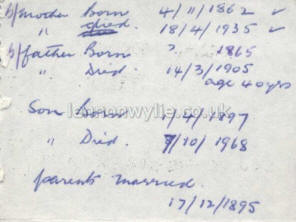 G/mother Born 4/11/1862 ✓
" died 18/4/1935 ✓
G/father Born ? 1865
" Died 14/3/1905
age 40 yrs
lennonwylie.co.uk
Son Born /4/1897
" Died /10/1968
parents married
17/12/1895